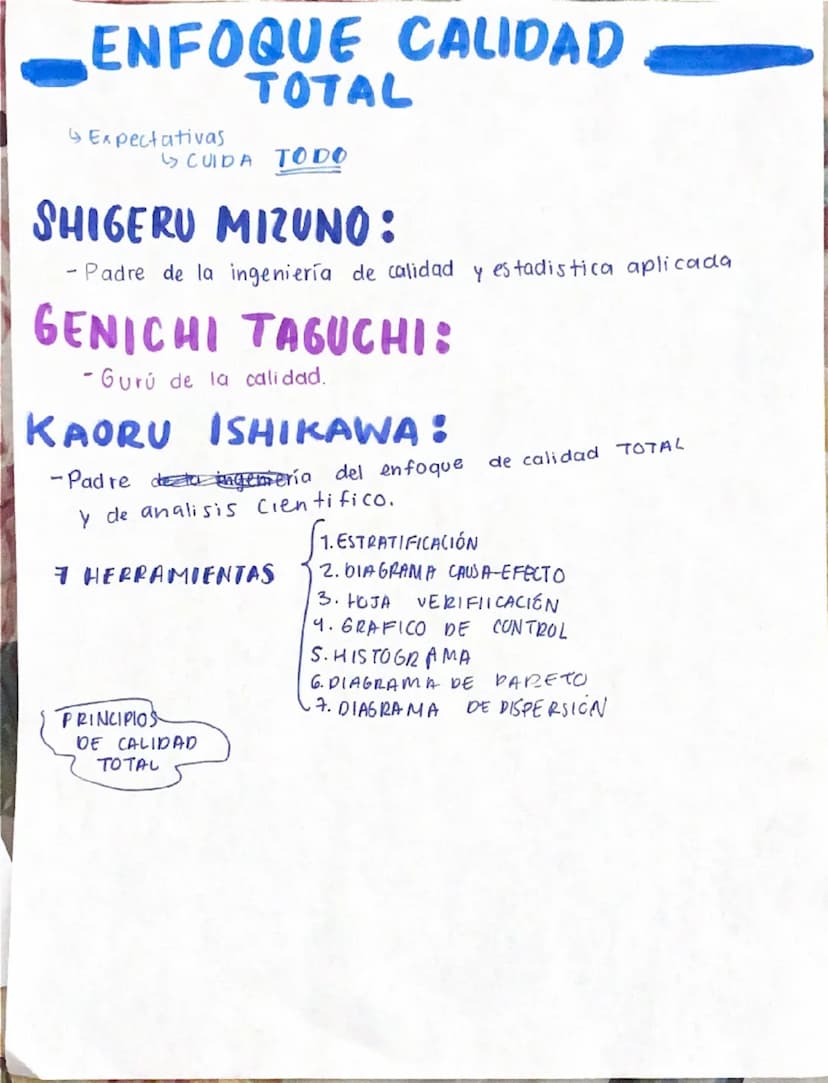 ENFOQUE CALIDAD
TOTAL
↳ Expectativas
↳ CUIDA TODO
SHIGERU MIZUNO:
- Padre de la ingeniería de calidad y estadistica aplicada
GENICHI TAGUCHI:
- Gurú de la calidad.
KAORU ISHIKAWA:
- Padre de la ingeniería del enfoque de calidad TOTAL
y de analisis Cientifico.
7 HERRAMIENTAS
1. ESTRATIFICACIÓN
2. DIAGRAMA CAUSA-EFECTO
3. HOJA VERIFIICACIÓN
4. GRAFICO DE CONTROL
5. HISTOGRAMA
6. DIAGRAMA DE PARETO
7. DIAGRAMA DE DISPERSIÓN
PRINCIPIOS
DE CALIDAD
TOTAL